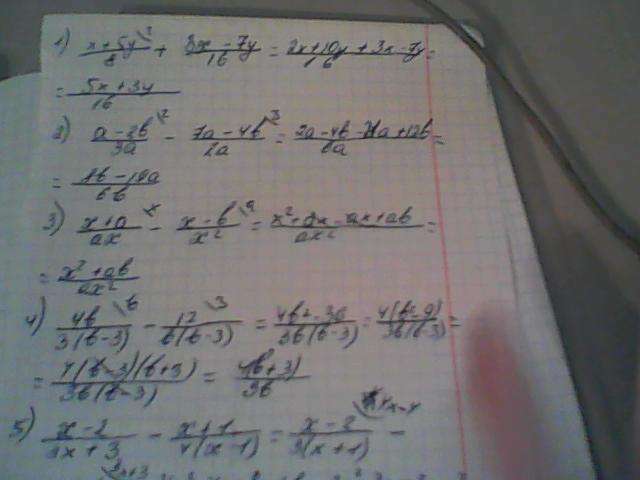 1) (x+5y)/8 \2 + (3x-7y)/16 = (2x+10y+3x-7y)/16 =
= (5x+3y)/16
2) (a-2b)/3a \2 - (7a-4b)/2a \3 = (2a-4b-21a+12b)/6a =
= (8b-19a)/6b
3) (x+a)/ax \x - (x-b)/x² \a = (x²+ax-ax+ab)/ax² =
= (x²+ab)/ax²
4) 4b/3(b-3) \b - 12/b(b-3) \3 = (4b²-36)/3b(b-3) = 4(b²-9)/3b(b-3) =
= 4(b-3)(b+3)/3b(b-3) = 4(b+3)/3b
5) (x-2)/3x+3 - (x+1)/4(x-1) = (x-2)/3(x+1) \4x-4 -